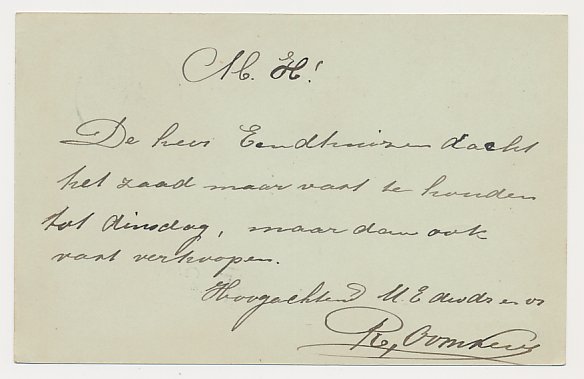 M. H!
De heer Eendhuizen dacht
het zaad maar vast te houden
tot dinsdag, maar dan ook
vast verkoopen.
Hoogachtend UEd dw dr en vr
R. Oomkens